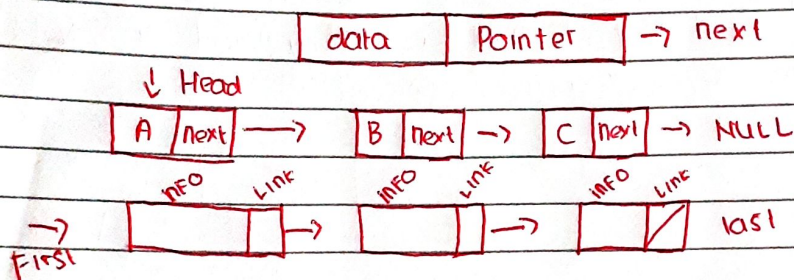 data Pointer → next
↓ Head
A next → B next → C next → NULL
INFO Link INFO Link INFO Link
→ → → last
First